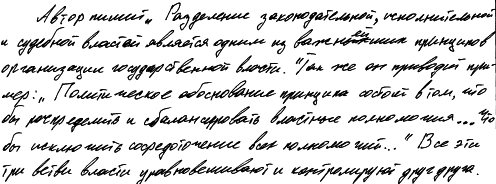 Автор пишет „ Разделение законодательной, исполнительной
и судебной властей является одним из важнейших принципов
организации государственной власти. "Так же он приводит при-
мер: „ Политическое обоснование принципа состоит в том, что
бы распределить и сбалансировать властные полномочия... "что
бы исключить сосредоточение всех полномочий..." Все эти
три ветви власти уравновешивают и контролируют друг друга.